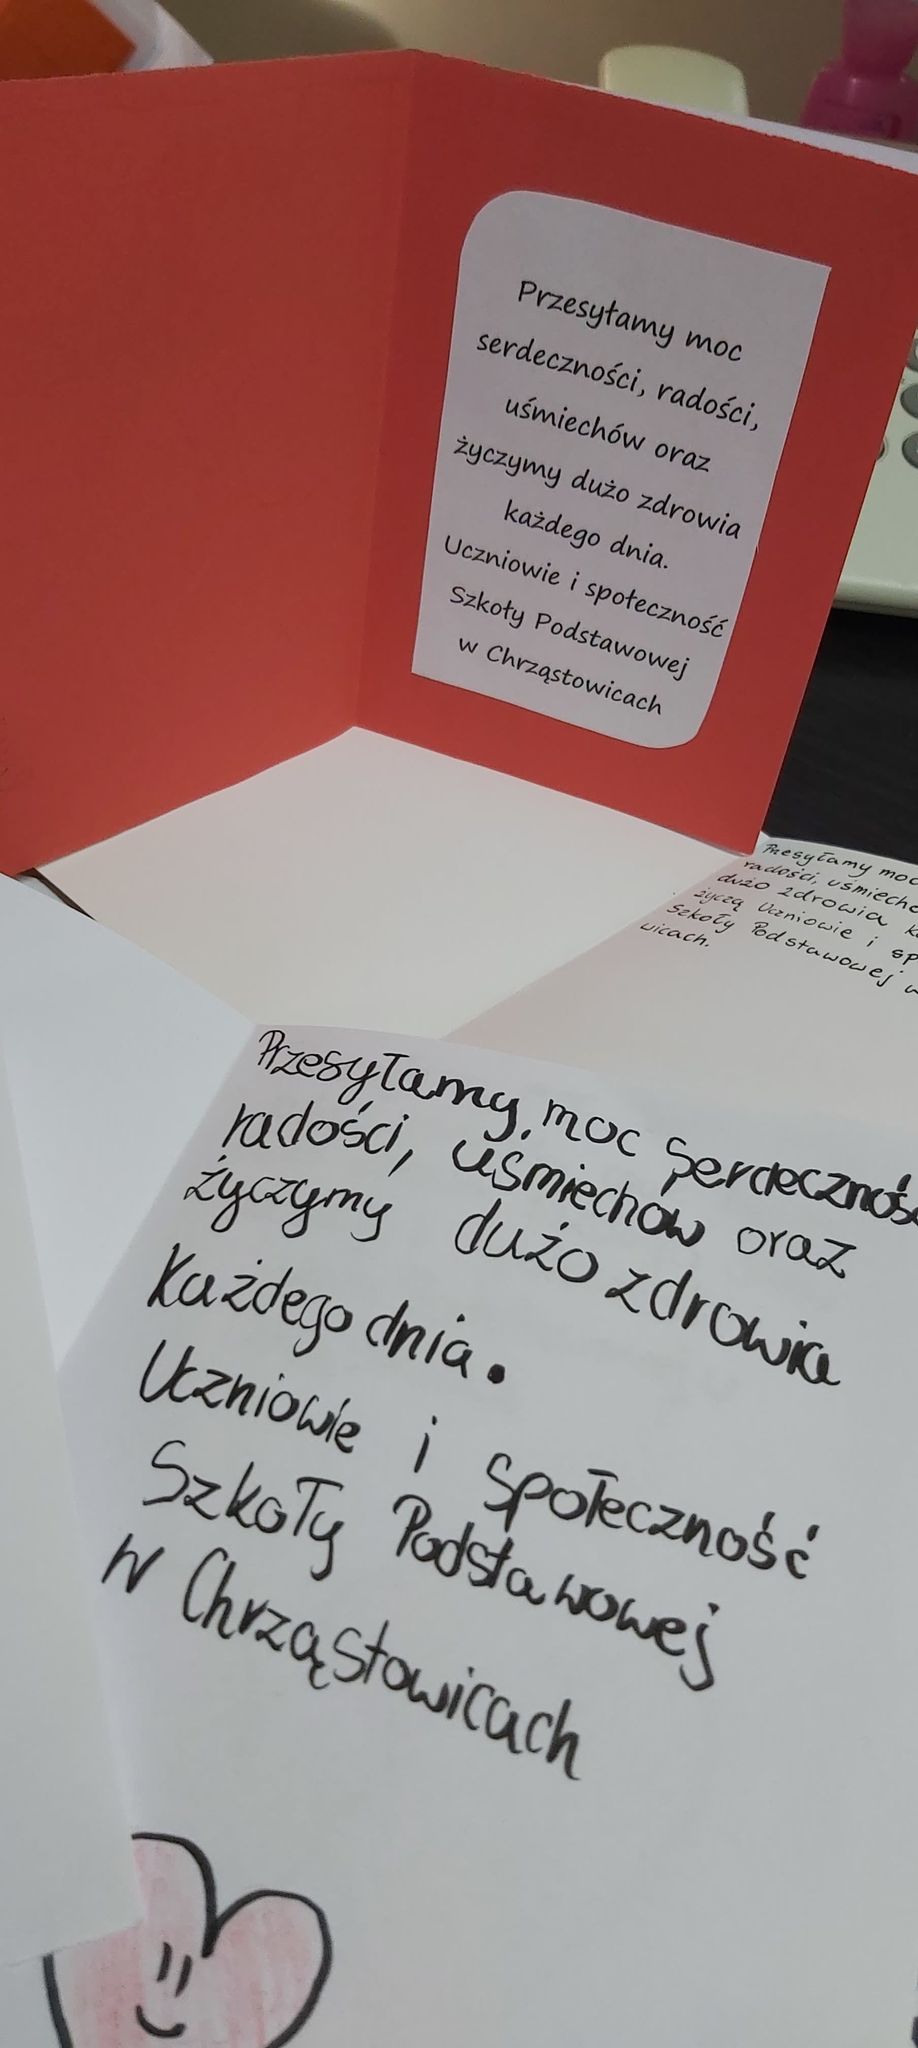 Przesyłamy moc
serdeczności, radości,
uśmiechów oraz
życzymy dużo zdrowia
każdego dnia.
Uczniowie i społeczność
Szkoły Podstawowej
w Chrząstowicach
Przesyłamy moc
radości, uśmiechó
dużo zdrowia k
życzą Uczniowie i sp
Szkoły Podstawowej w
wicach.
Przesyłamy, moc serdecznoś
radości, uśmiechów oraz
życzymy dużo zdrowia
Każdego dnia.
Uczniowie i społeczność
Szkoły Podstawowej
w Chrząstowicach